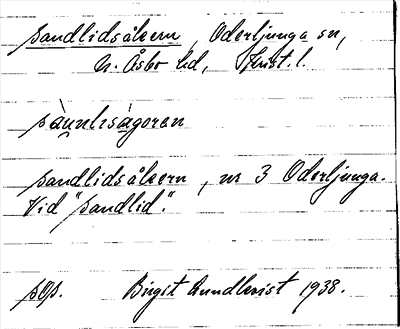 sandlidsåkern, Oderljunga sn,
N. Åsbo hd, Krist. l.
sàu̯nlisàgoren
sandlidsåkern, nr 3 Oderljunga.
Vid "sandlid".
sep. Birgit Lundkvist 1938.